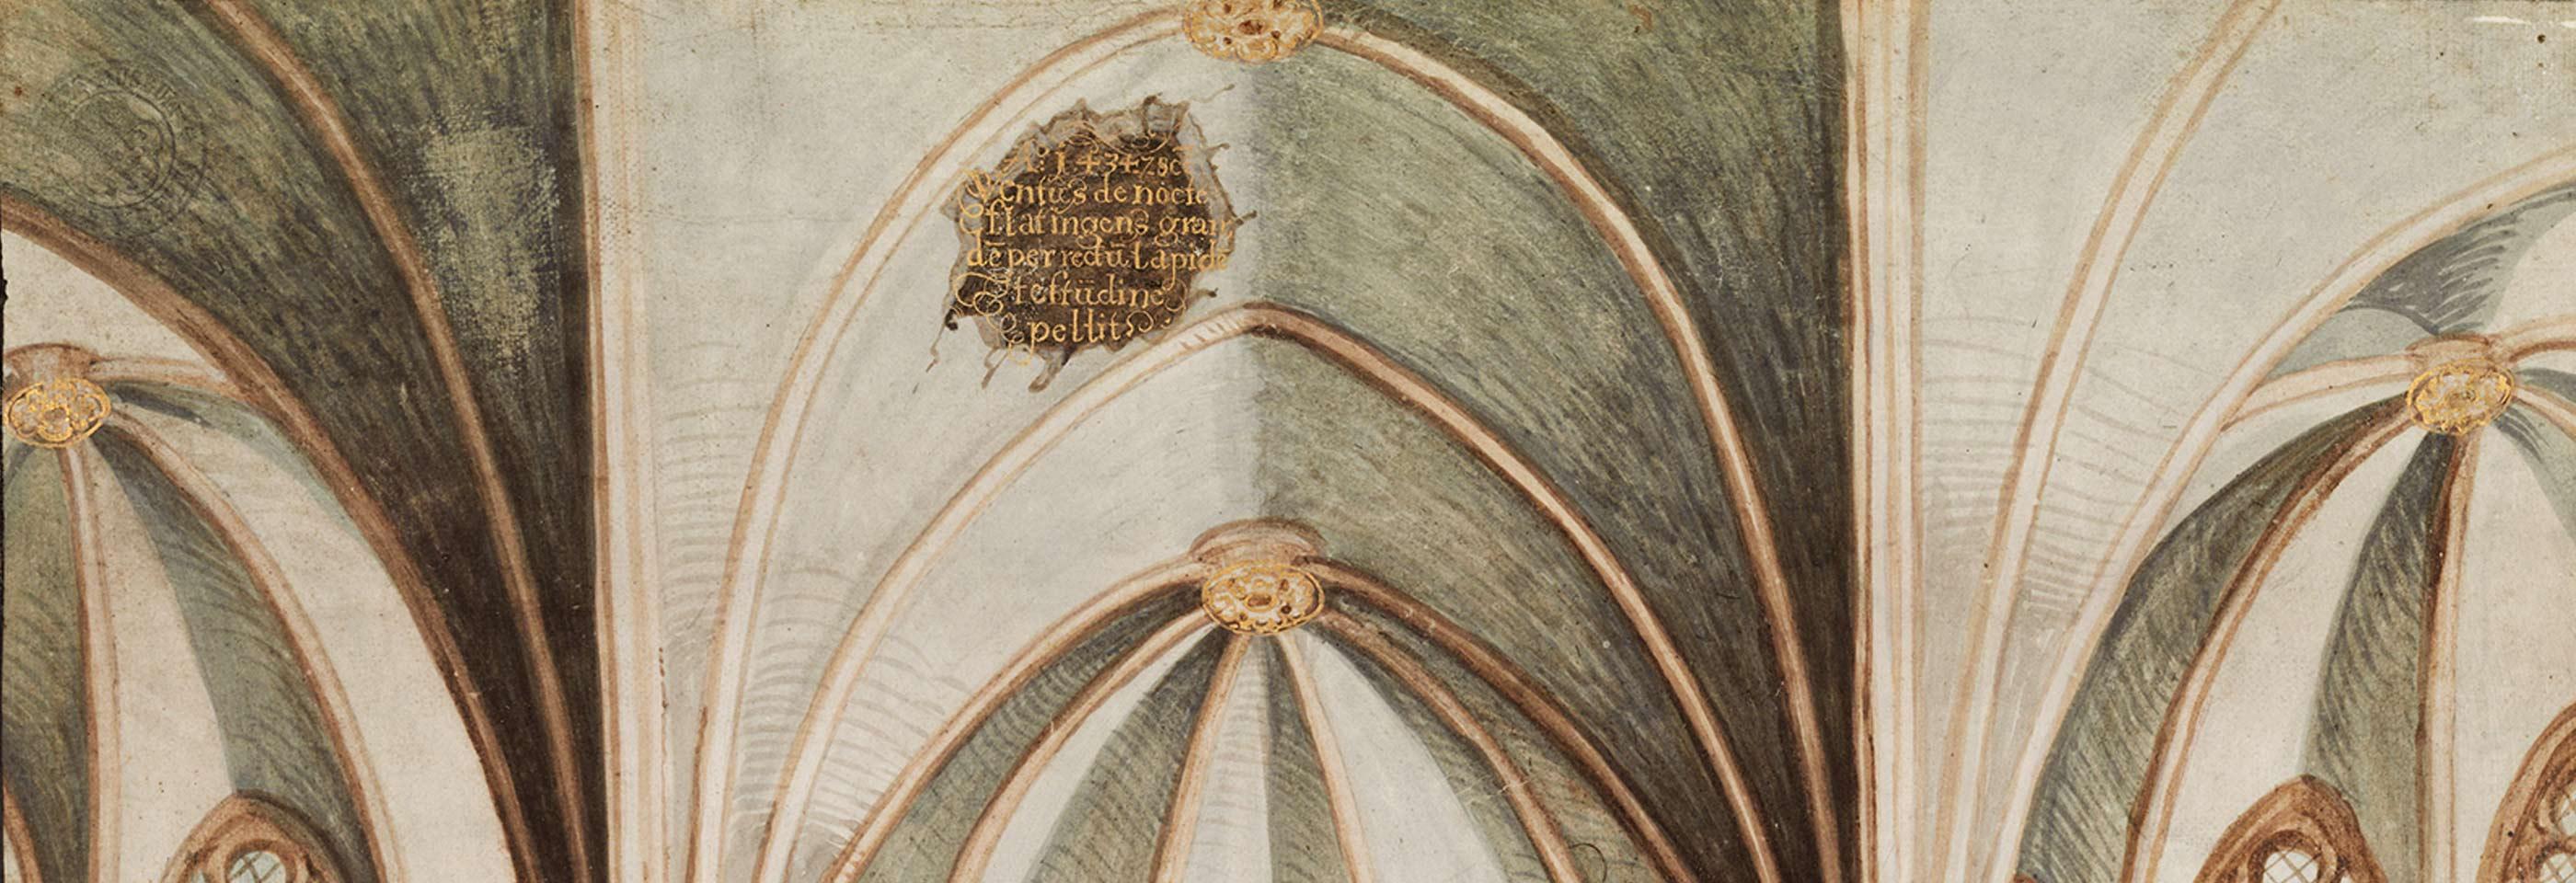 A: 1434 7 8c
Ventus de nocte
flat ingens gran
dē per redū lapidē
testüdine
pellit